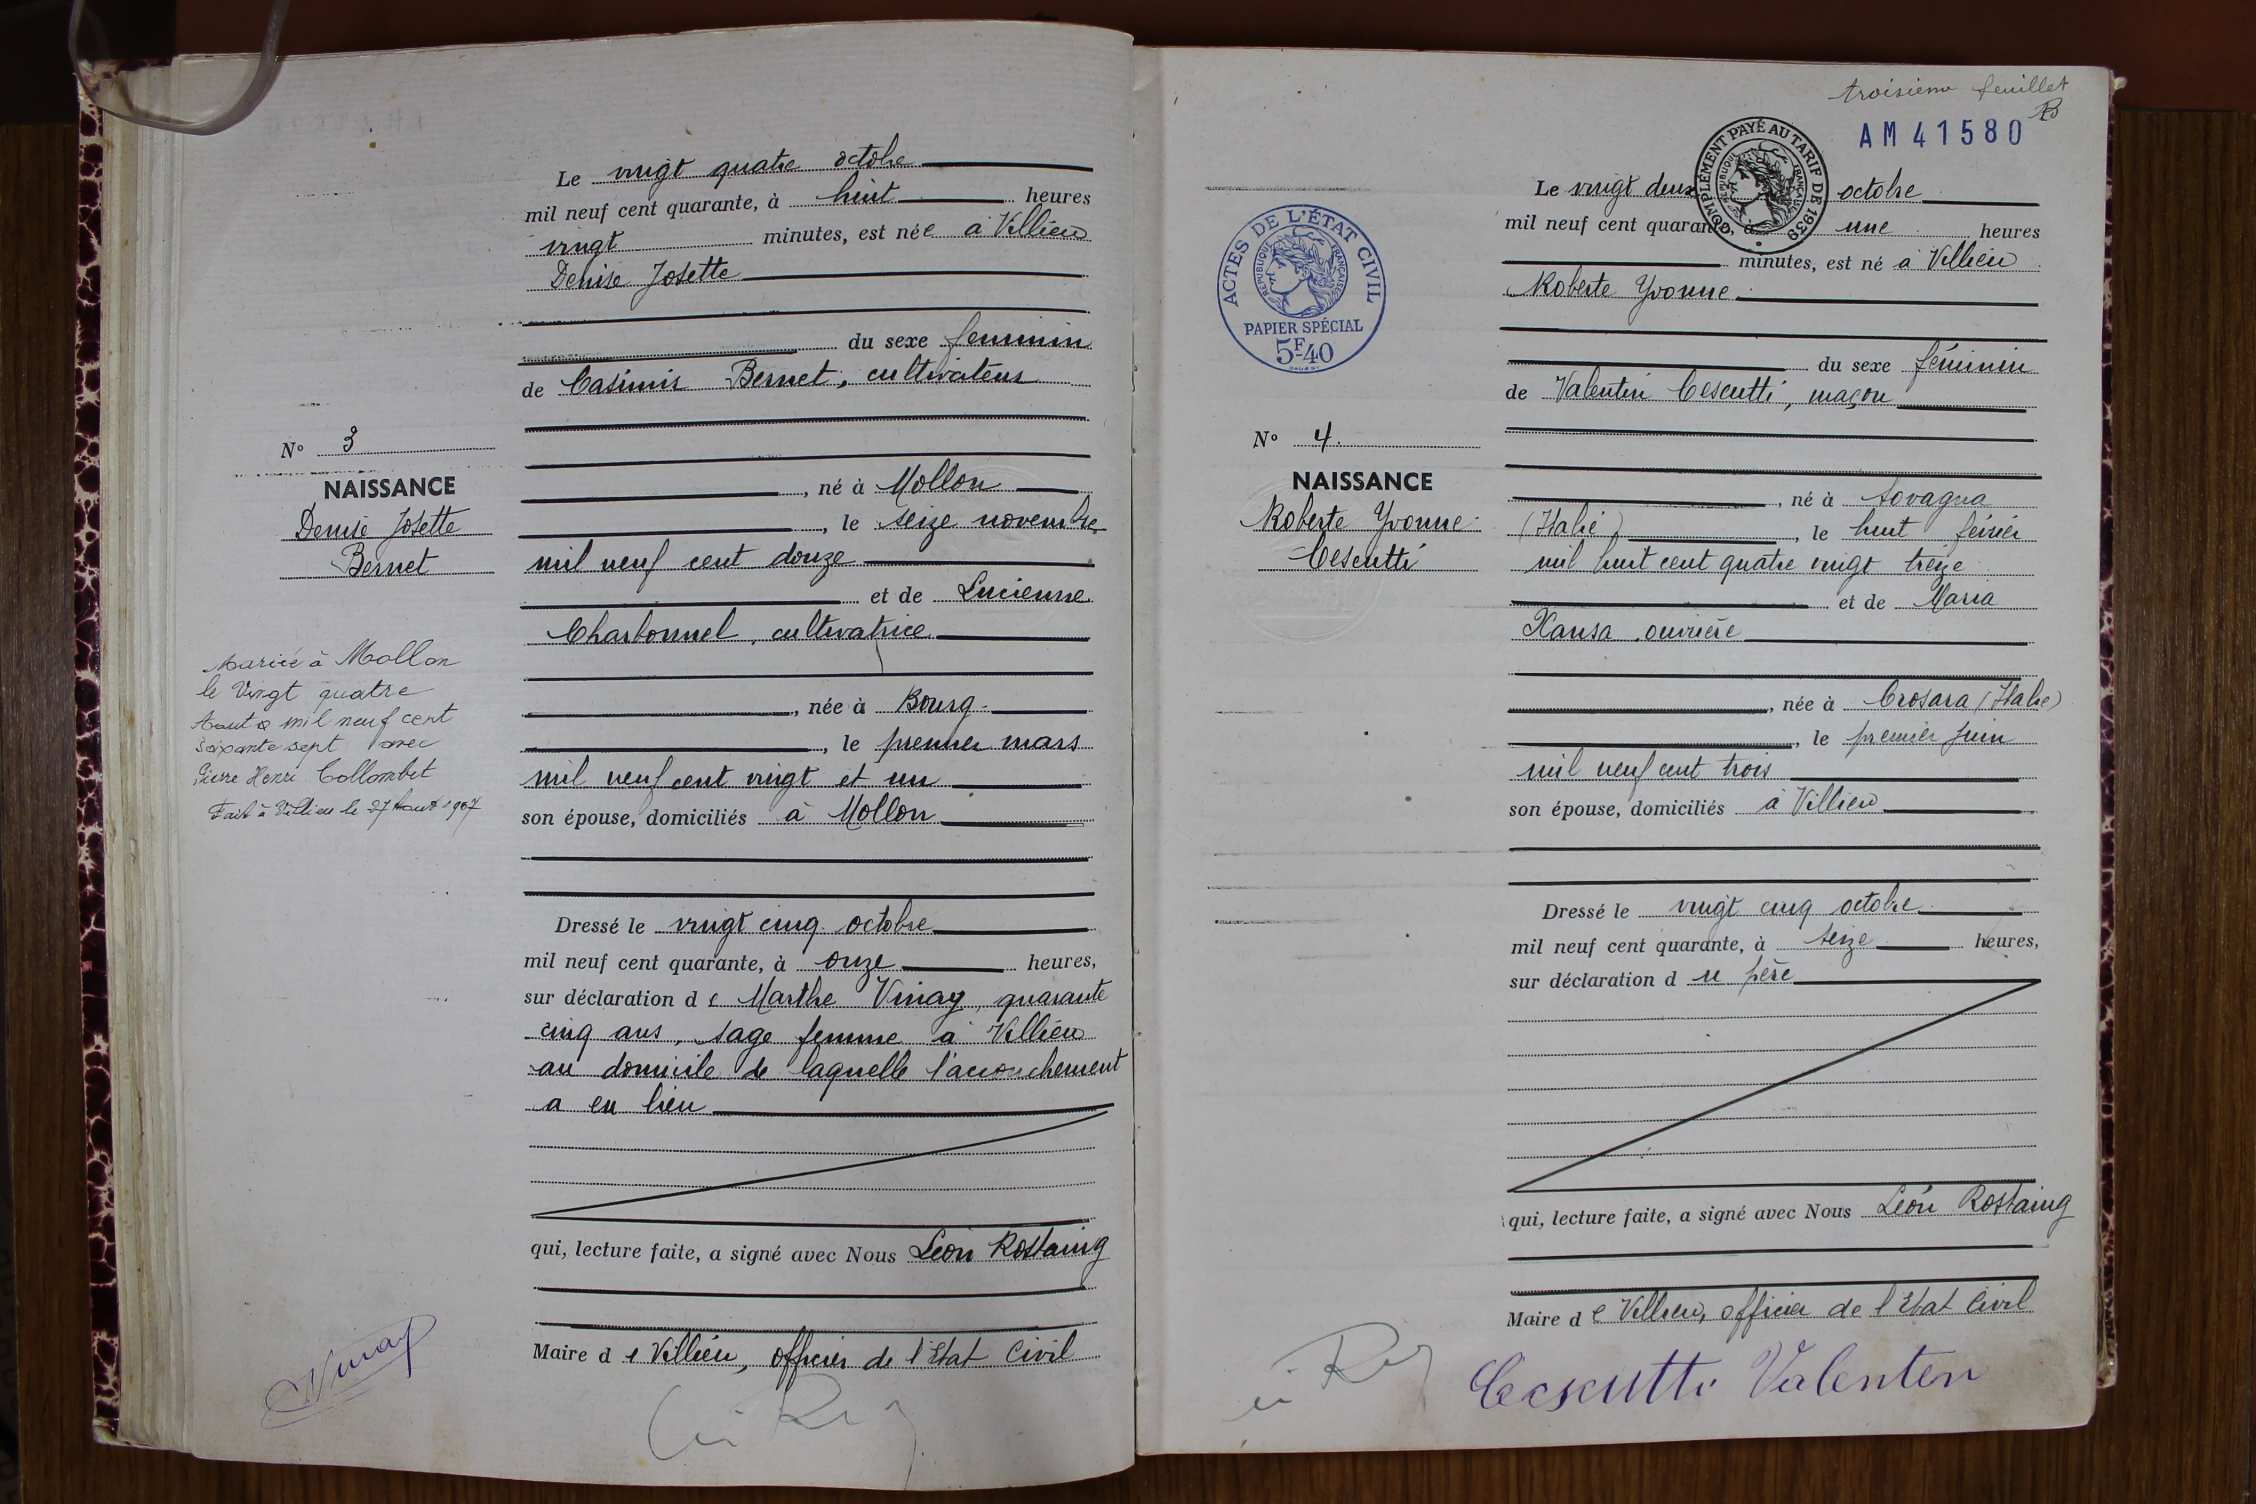 Le vingt quatre octobre
mil neuf cent quarante, à huit heures
vingt minutes, est née à Villieu
Denise Josette
du sexe féminin
de Casimir Bernet, cultivateur
N° 3
NAISSANCE
Denise Josette
Bernet
, né à Mollon
, le seize novembre
mil neuf cent douze
et de Lucienne
Charbonnel, cultivatrice
, née à Bourg
, le premier mars
mil neuf cent vingt et un
son épouse, domiciliés à Mollon
Mariée à Mollon
le Vingt quatre
Août mil neuf cent
soixante sept avec
Pierre Henri Collombet
Fait à Villieu le 27 Août 1967
Dressé le vingt cinq octobre
mil neuf cent quarante, à onze heures,
sur déclaration de Marthe Vinay, quarante
cinq ans, sage femme à Villieu
au domicile de laquelle l'accouchement
a eu lieu
qui, lecture faite, a signé avec Nous Léon Rostaing
Maire de Villieu, officier de l'Etat Civil
Vinay
troisième feuillet
AM 41580
COMPLÉMENT PAYÉ AU TARIF DE 1939
RÉPUBLIQUE FRANÇAISE
Le vingt deux octobre
mil neuf cent quarante, à une heures
minutes, est né à Villieu
Roberte Yvonne
ACTES DE L'ÉTAT CIVIL
RÉPUBLIQUE FRANÇAISE
PAPIER SPÉCIAL
5F40
du sexe féminin
de Valentin Cescutti, maçon
N° 4.
NAISSANCE
Roberte Yvonne
Cescutti
, né à
(Italie), le huit février
mil huit cent quatre vingt treize
et de Maria
Xausa, ouvrière
, née à Crosara (Italie)
, le premier juin
mil neuf cent trois
son épouse, domiciliés à Villieu
Dressé le vingt cinq octobre
mil neuf cent quarante, à seize heures,
sur déclaration du père
qui, lecture faite, a signé avec Nous Léon Rostaing
Maire de Villieu, officier de l'Etat Civil
Cescutti Valenten